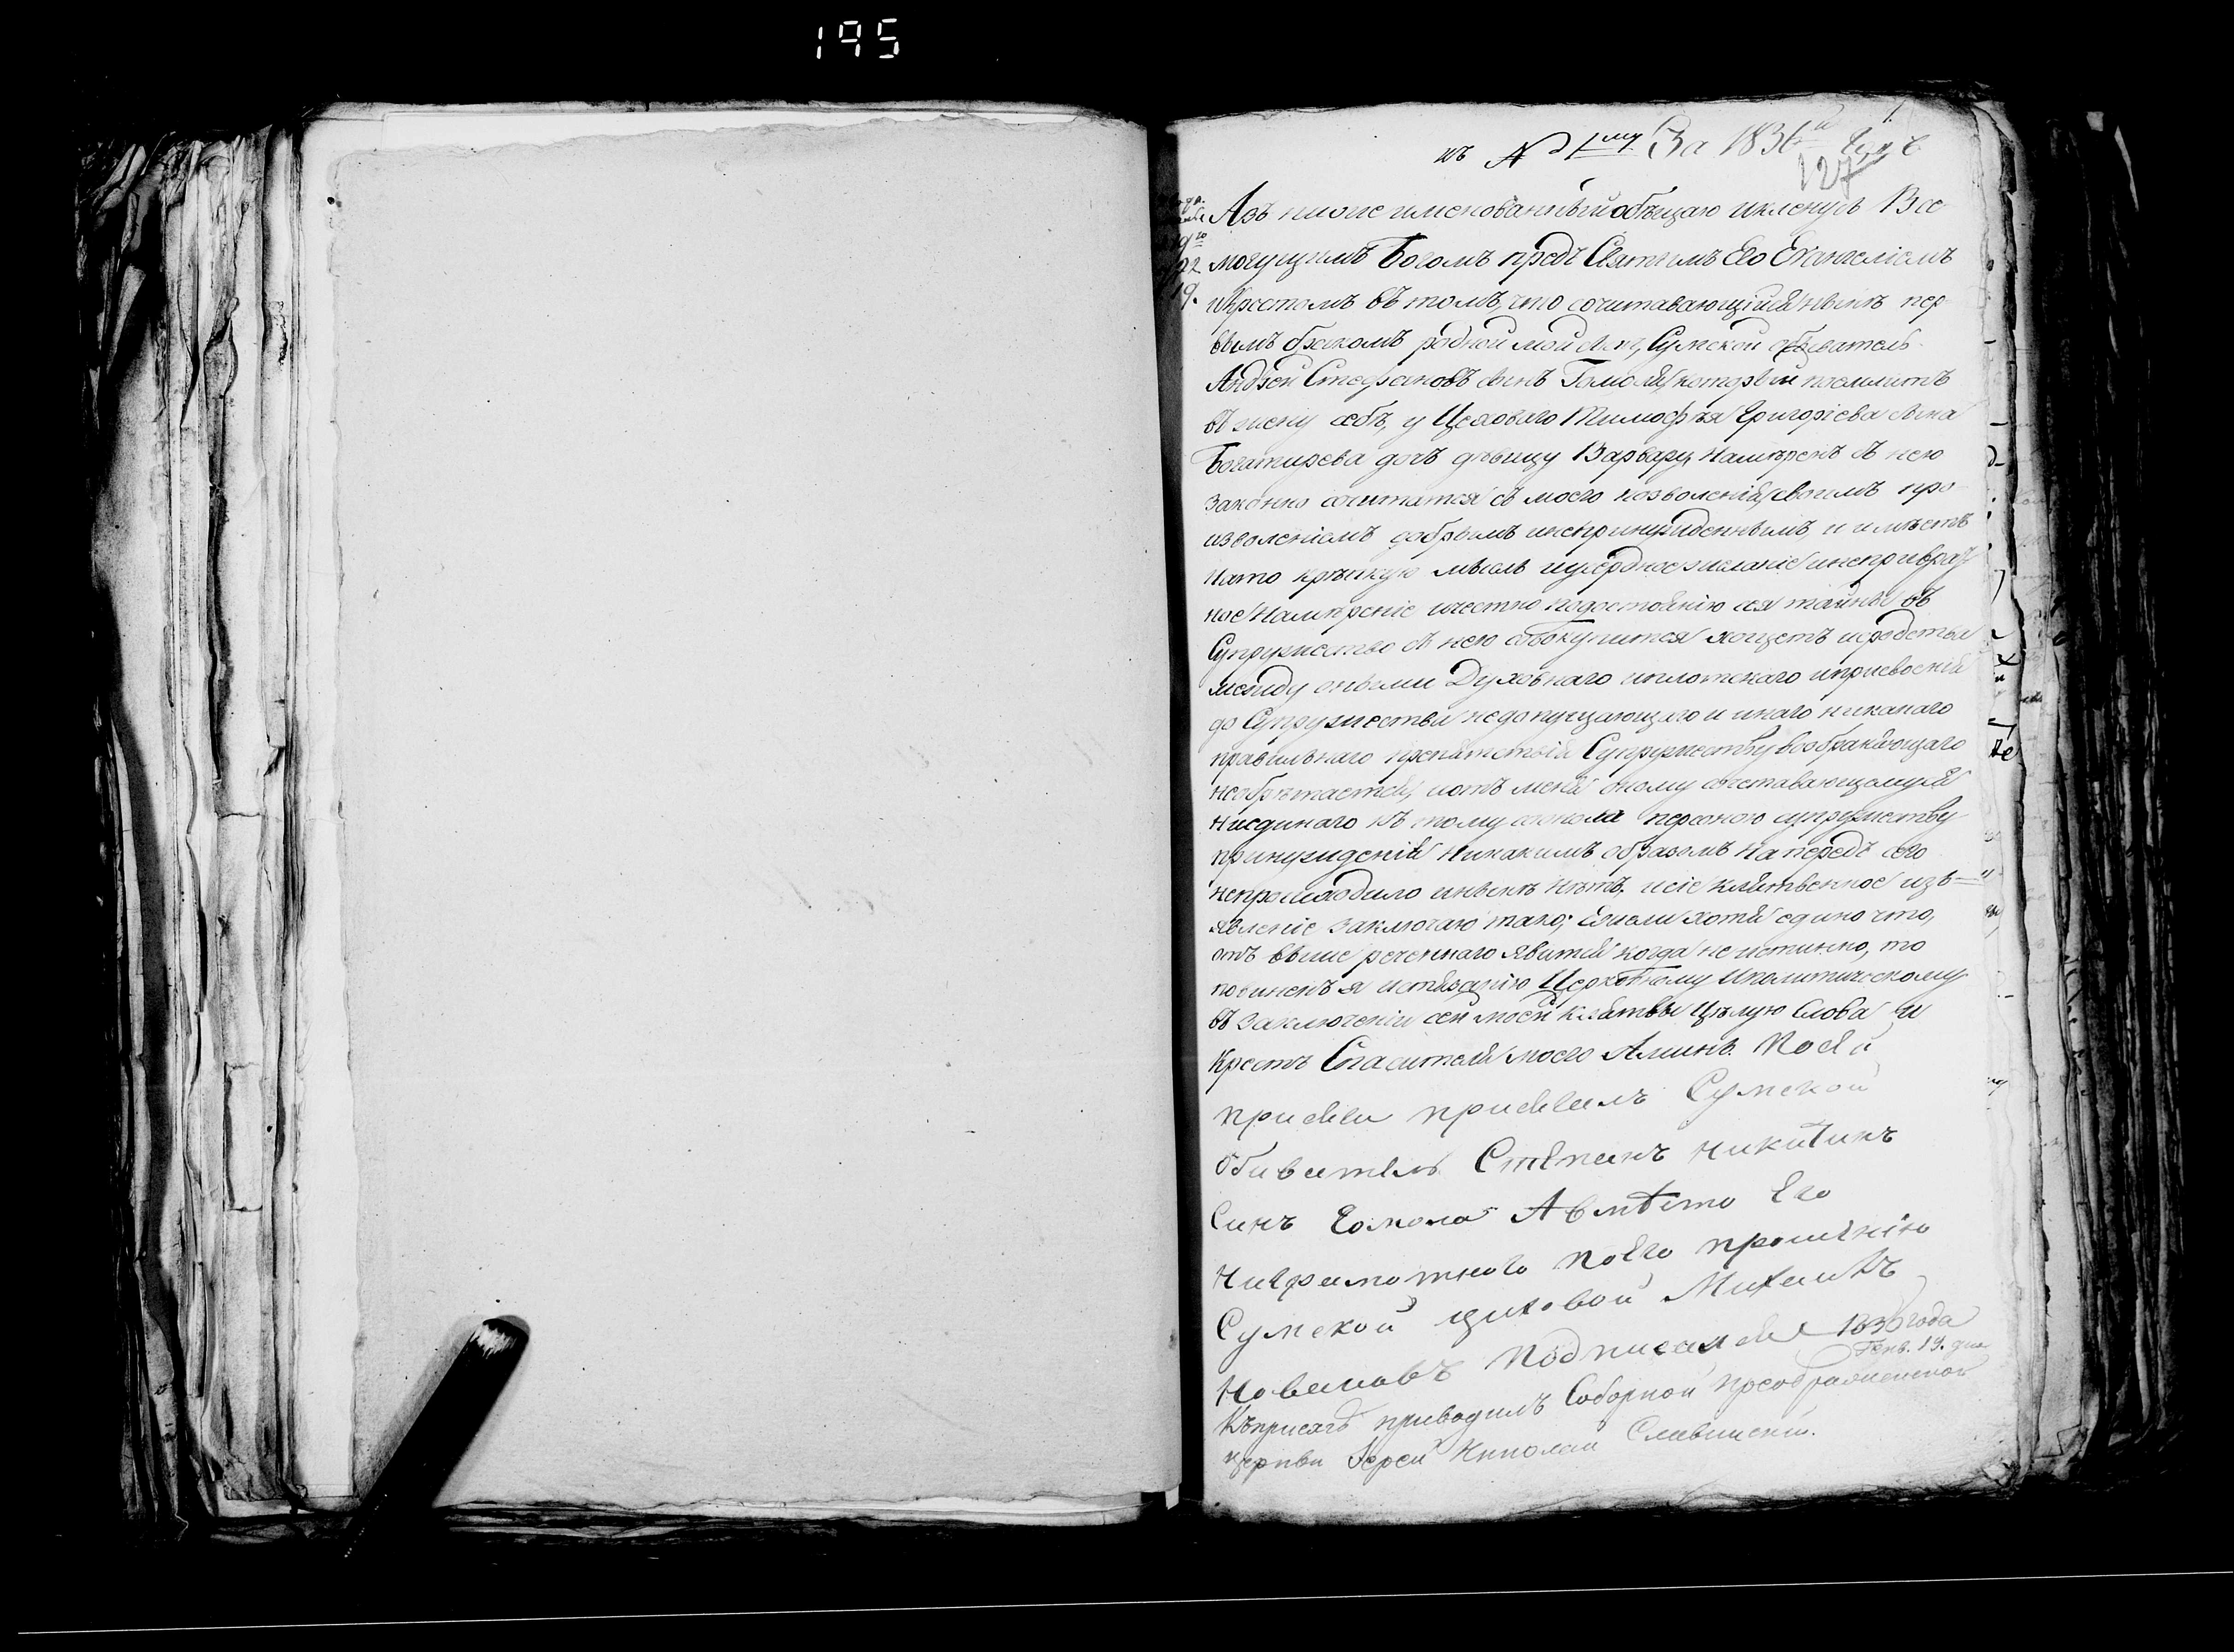 195
1.
къ № 1му За 1836й Годъ
127
Азъ ниже именованный обѣщаю и кленусь Все
могущимъ Богомъ предъ Святимъ Его Евангелиемъ
и Крестомъ въ томъ, что сочитавающийся нынѣ пер
вымъ бракомъ родной мой сынъ, Сумской обыватель
Андрей Стефановъ сынъ Гомоля который поемлитъ
въ жену себѣ, у Цеховаго Тимофѣя Григорiева сына
Богатирева дочь дѣвицу Варвару, намѣренъ съ нею
законно сочитатся съ моего позволенiя, своимъ про
изволенiемъ добрымъ и непринужденнымъ, и имѣетъ
на то крѣпкую мысль и усердное желанiе и непривра
ное намѣренiе и честно по достоянiю сея тайны въ
Супружество съ нею совокупится хощетъ и сродства
между оными Духовнаго и плотскаго и присвоенiя
до Супружества недопущающаго и инаго никакаго
правильнаго препятствiя Супружеству возбраняющаго
необрѣтается, и отъ меня оному сочетавающемуся
ниединаго къ тому персоною супружеству
принужденiя никакимъ образомъ на передъ сего
непроисходило и нынѣ нѣтъ, и сiе клятвенное изъ=
явленiе заключаю тако; ежели хотя едино что,
отъ выше реченнаго явится когда не истинно, то
повиненъ я истязанiю Церковному и политическому
въ заключенiи сей моей клятвы цѣлую Слова и
Крестъ Спасителя моего Аминь. По сей
присяги присягалъ Сумской
обиватель Степанъ Никитинъ
Синъ Гомола А вмѣсто Его
Ниграмотного по Его прошению
Сумской циховой Михаилъ
Новиковъ подписался 1836 года
Генв. 19. дня
Къ присягѣ приводилъ Соборной Преображенской
церкви Iерей Николай